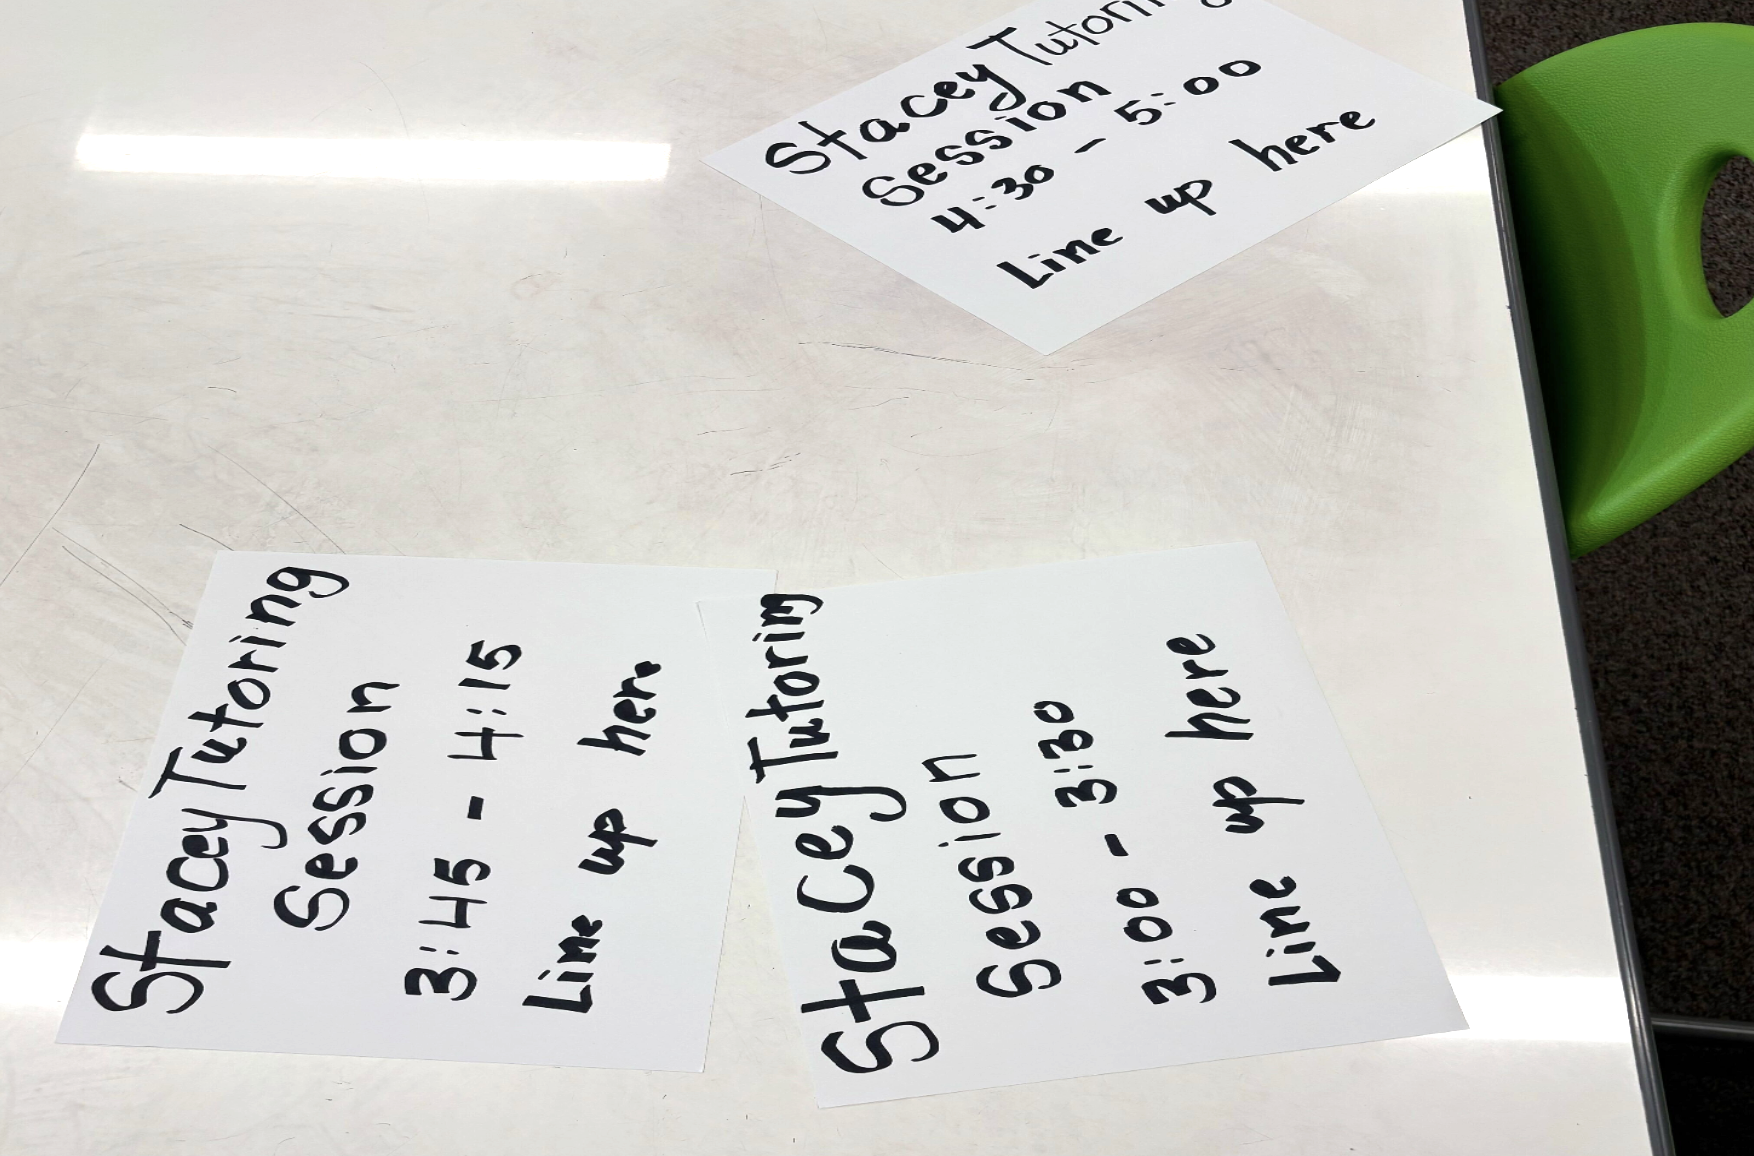 Stacey Tutoring
Session
4:30 - 5:00
Line up here
Stacey Tutoring
Session
3:45 - 4:15
Line up here
Stacey Tutoring
Session
3:00 - 3:30
Line up here